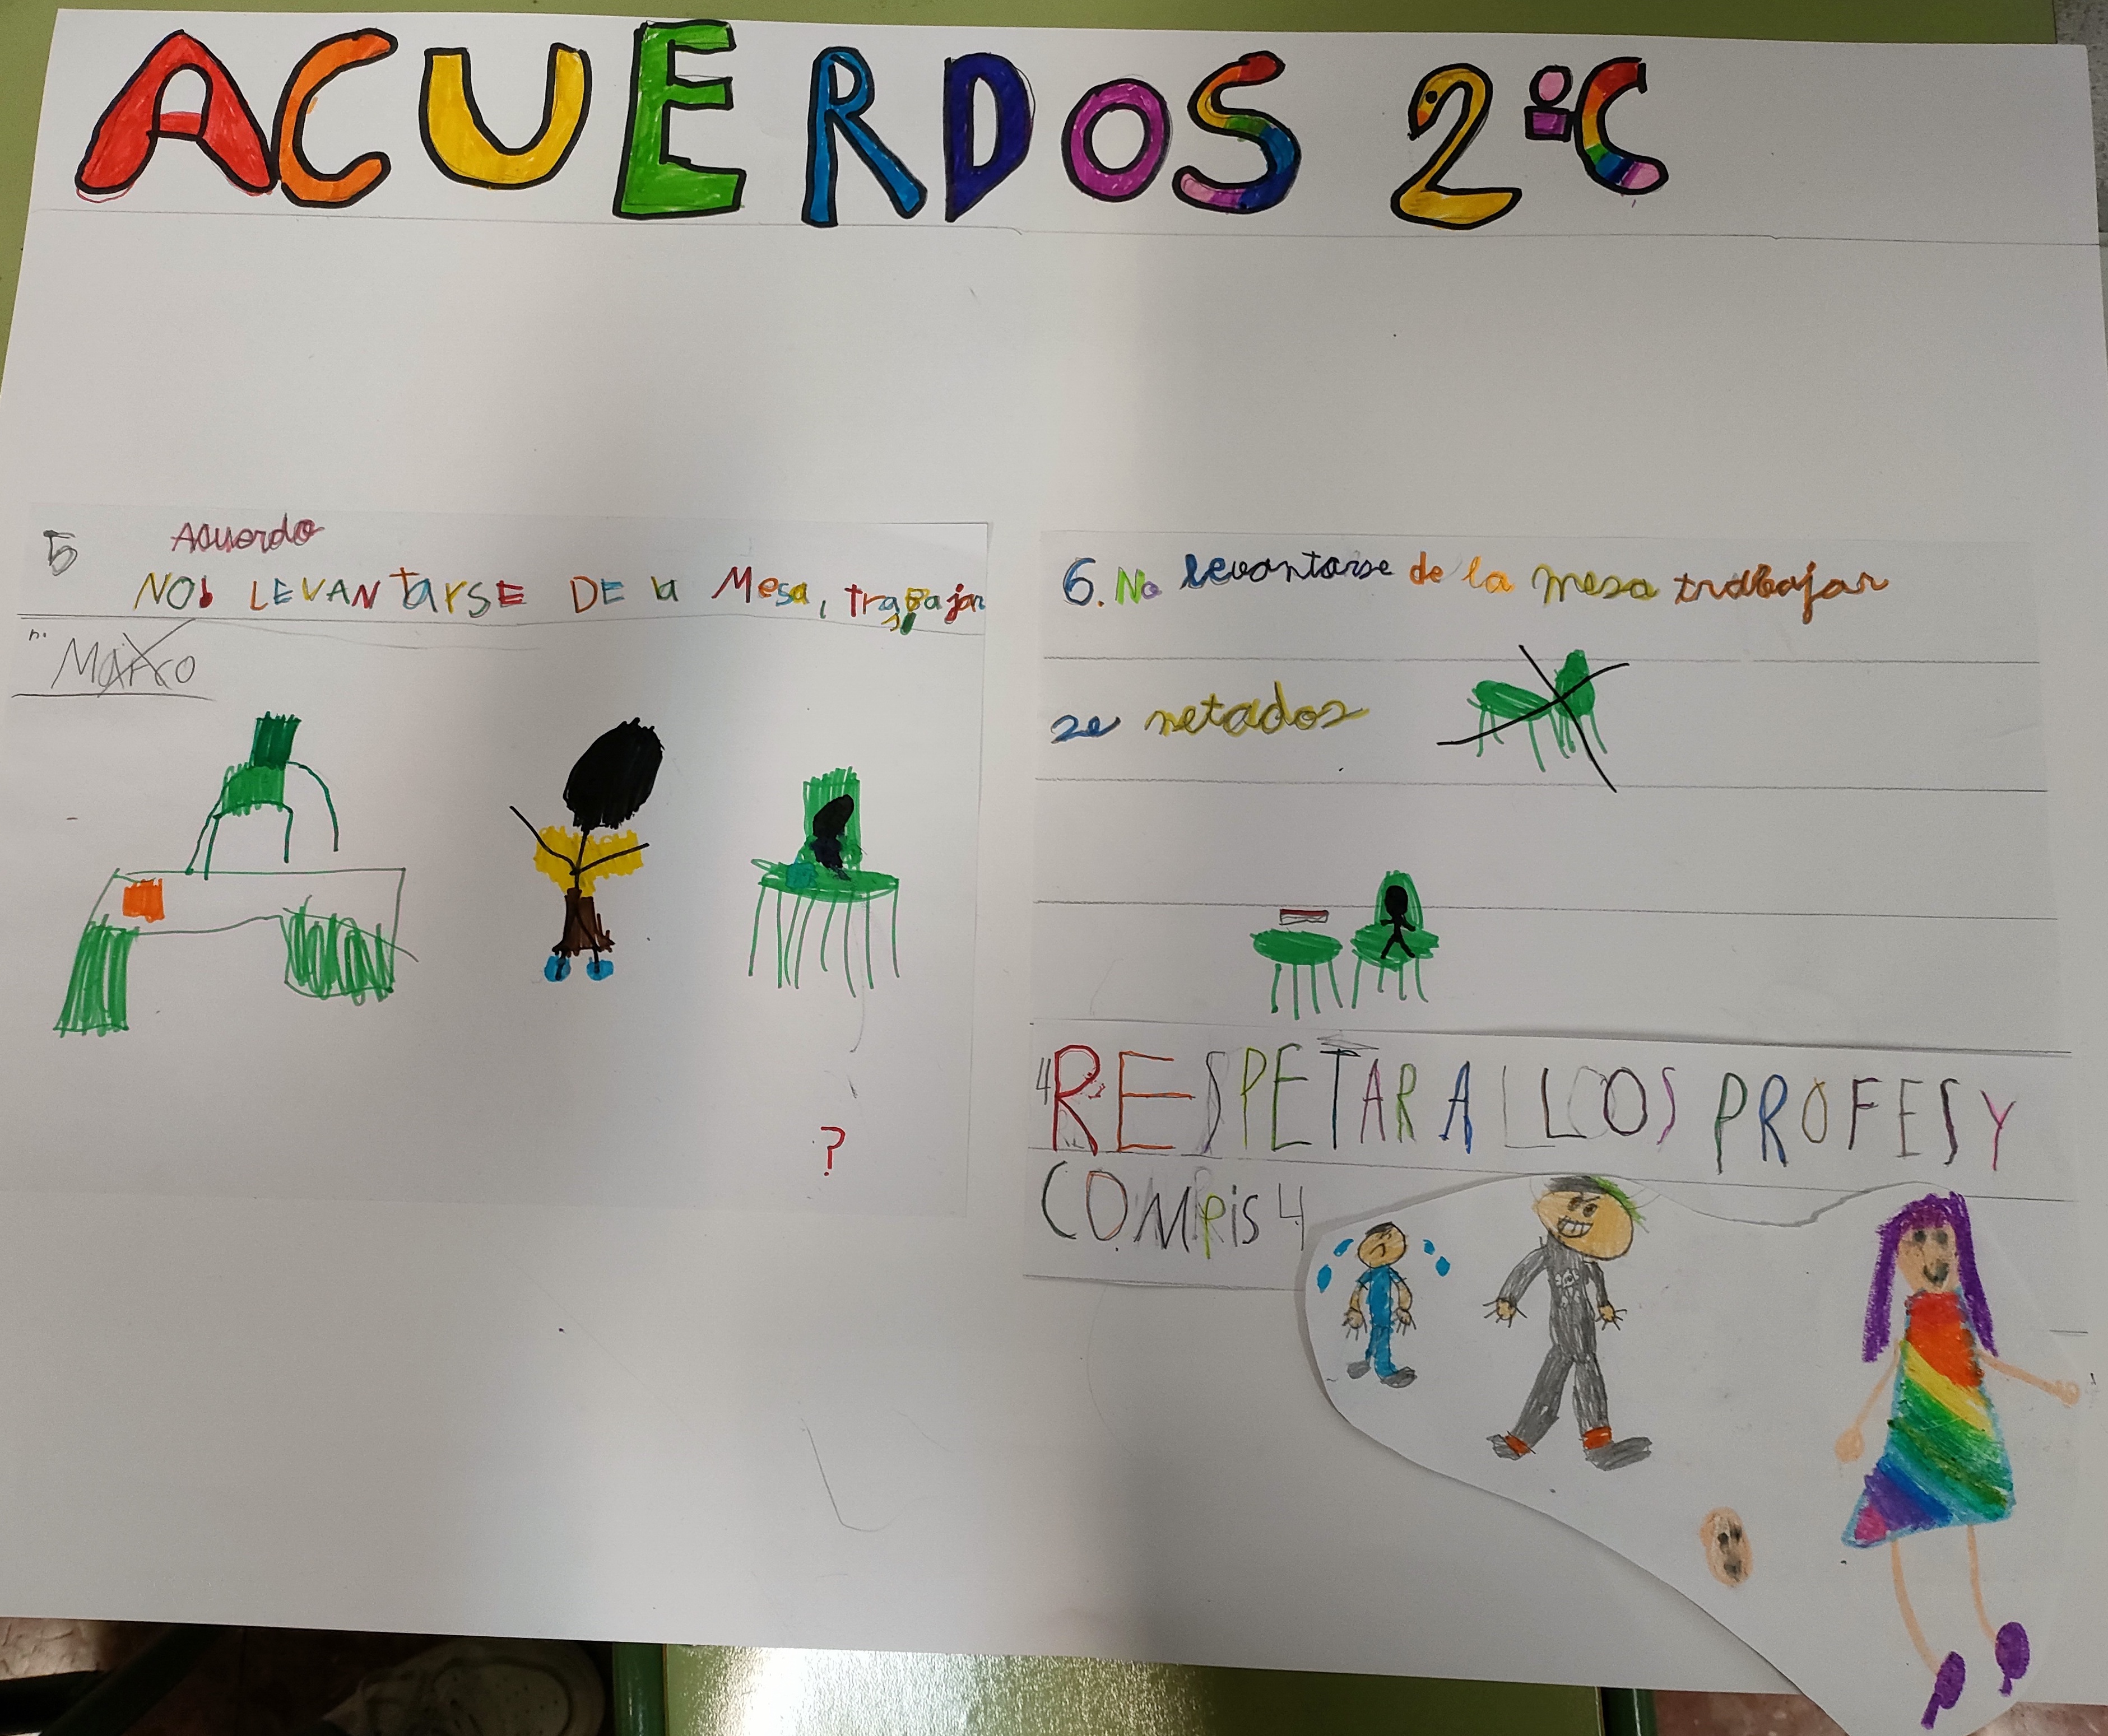 ACUERDOS 2ºC
5 Acuerdo
NO LEVANTARSE DE la Mesa, trabajar
Marco
?
6. No levantarse de la mesa trabajar
se netados
4 RESPETAR A LOS PROFES Y
COMPIS 4